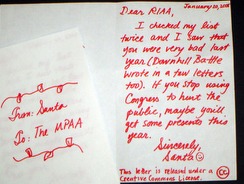 From: Santa
To: The MPAA
January 20, 200
Dear RIAA,
I checked my list
twice and I saw that
you were very bad last
year (Downhill Battle
wrote in a few letters
too). If you stop using
Congress to hurt the
public, maybe you'll
get some presents this
year.
Sincerely,
Santa
This letter is released under a
Creative Commons License.
CC